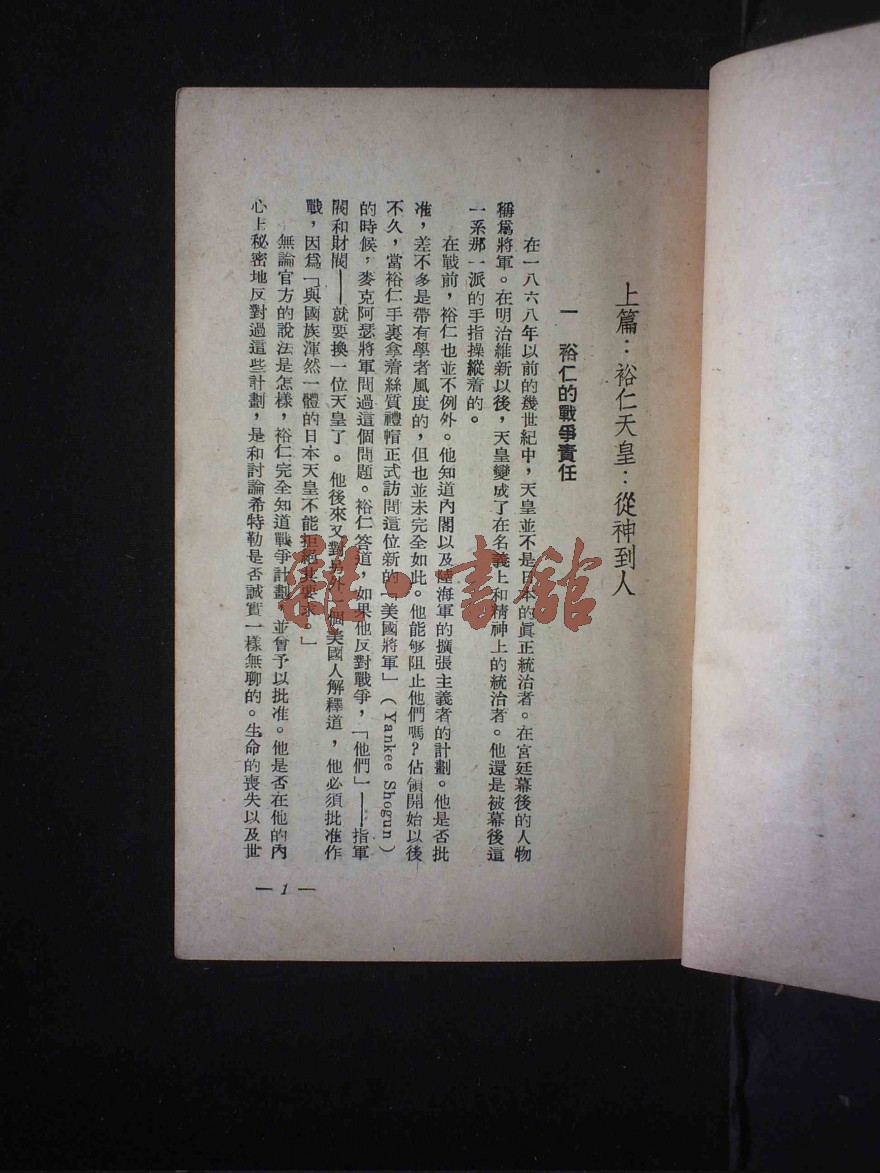 上篇：裕仁天皇：從神到人
一　裕仁的戰爭責任
在一八六八年以前的幾世紀中，天皇並不是日本的眞正統治者。在宮廷幕後的人物
稱爲將軍。在明治維新以後，天皇變成了在名義上和精神上的統治者。他還是被幕後這
一系那一派的手指操縱着的。
在戰前，裕仁也並不例外。他知道內閣以及陸海軍的擴張主義者的計劃。他是否批
准，差不多是帶有學者風度的，但也並未完全如此。他能够阻止他們嗎？佔領開始以後
不久，當裕仁手裏拿着絲質禮帽正式訪問這位新的「美國將軍」（Yankee Shogun）
的時候，麥克阿瑟將軍問過這個問題。裕仁答道，如果他反對戰爭，「他們」——指軍
閥和財閥——就要換一位天皇了。他後來又對另外一個美國人解釋道，他必須批准作
戰，因爲「與國族渾然一體的日本天皇不能拒絕其要求。」
無論官方的說法是怎樣，裕仁完全知道戰爭計劃，並曾予以批准。他是否在他的內
心上秘密地反對過這些計劃，是和討論希特勒是否誠實一樣無聊的。生命的喪失以及世
— 1 —
雜·書館